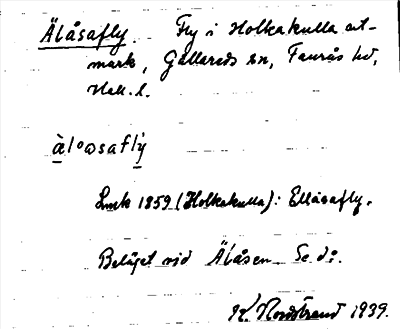 Älåsafly. Fly i Holkakulla ut-
mark, Gällareds sn, Faurås hd,
Hall. l.
àlºωsaflỳ
Lmk 1859 (Holkakulla): Ellåsafly.
Beläget vid Älåsen. Se d:o.
Nordstrand 1939.